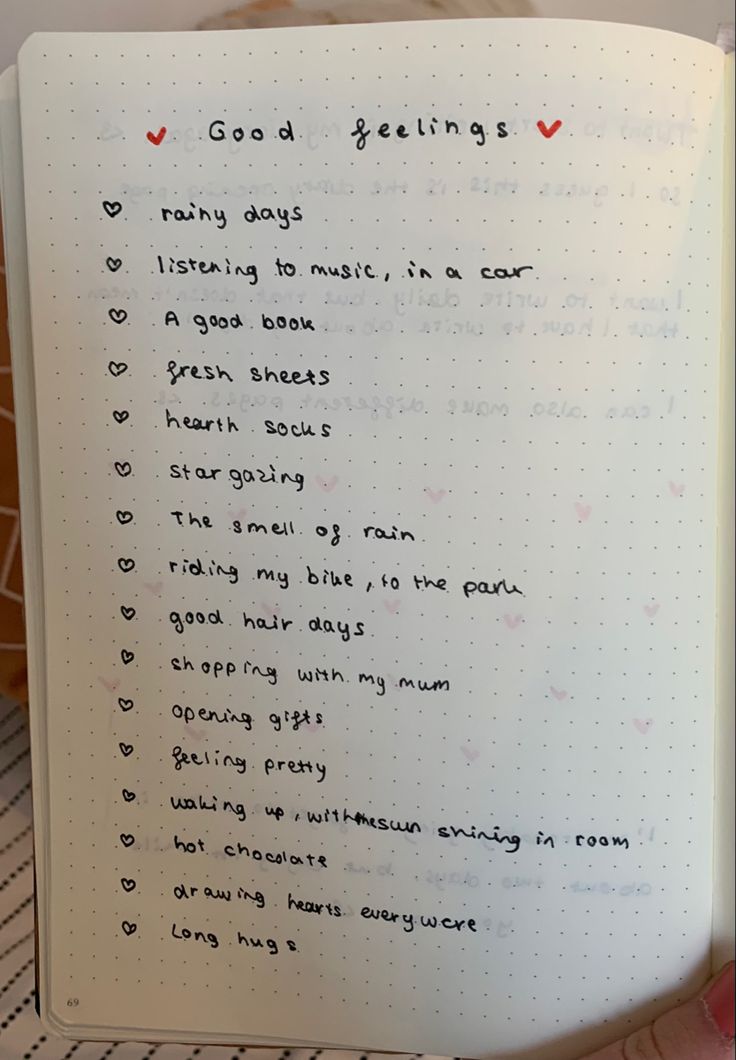 Good feelings
rainy days
listening to music, in a car
A good book
fresh sheets
hearth socks
star gazing
The smell of rain
riding my bike, to the park
good hair days
shopping with my mum
opening gifts
feeling pretty
waking up, with the sun shining in room
hot chocolate
drawing hearts everywere
Long hugs
69